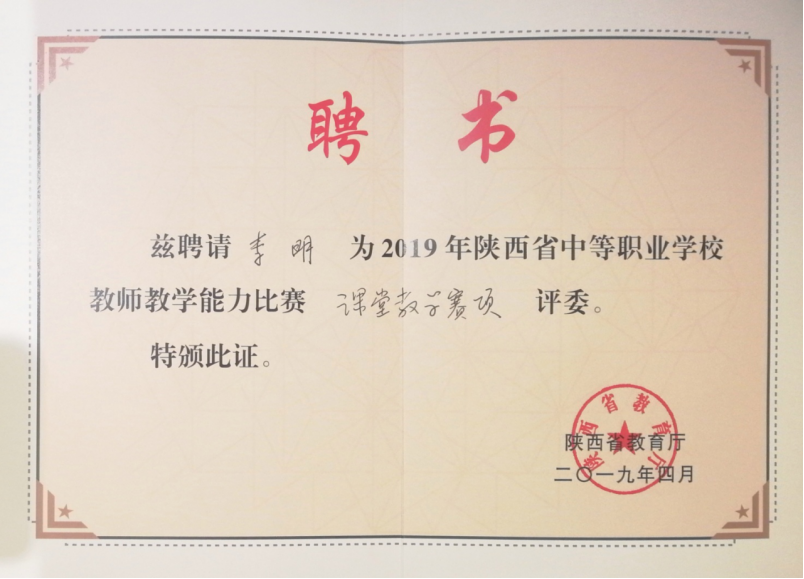 聘书
兹聘请 李明 为2019年陕西省中等职业学校
教师教学能力比赛 课堂教学赛项 评委。
特颁此证。
陕西省教育厅
陕西省教育厅
二〇一九年四月